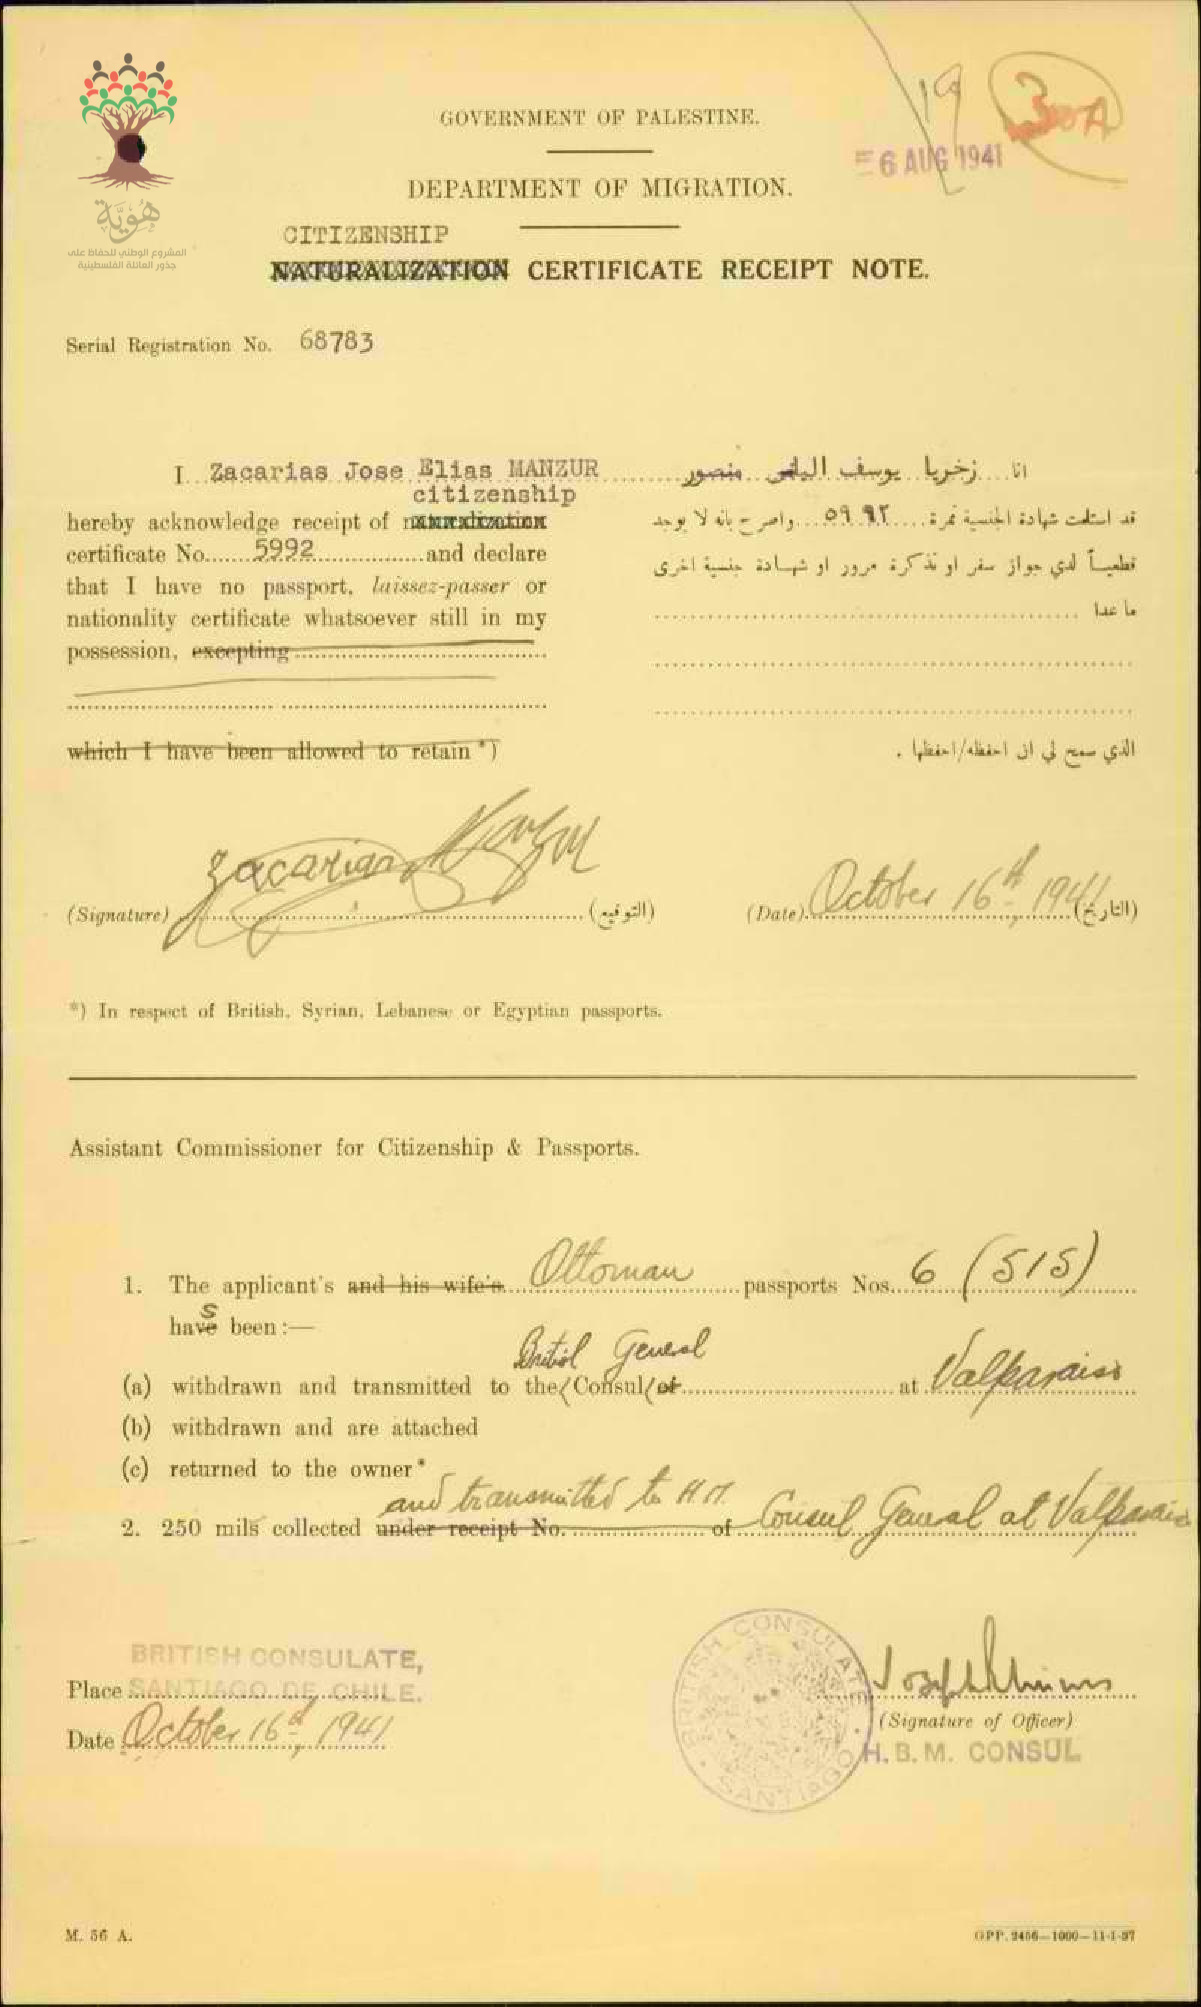 هُوِيَّة
المشروع الوطني للحفاظ على
جذور العائلة الفلسطينية
19
30A
6 AUG 1941
GOVERNMENT OF PALESTINE.
DEPARTMENT OF MIGRATION.
CITIZENSHIP
NATURALIZATION CERTIFICATE RECEIPT NOTE.
Serial Registration No. 68783
I Zacarias Jose Elias MANZUR
citizenship
hereby acknowledge receipt of naturalization
certificate No. 5992 and declare
that I have no passport, laissez-passer or
nationality certificate whatsoever still in my
possession, excepting
which I have been allowed to retain *)
انا زخريا يوسف الياس منصور
قد استلمت شهادة الجنسية نمرة ٥٩٩٢ واصرح بانه لا يوجد
قطعياً لدي جواز سفر او تذكرة مرور او شهادة جنسية اخرى
ما عدا
الذي سمح لي ان احفظه/احفظها .
(Signature) Zacarias Manzur (التوقيع)
(Date) October 16th, 1941 (التاريخ)
*) In respect of British, Syrian, Lebanese or Egyptian passports.
Assistant Commissioner for Citizenship & Passports.
1. The applicant's and his wife's Ottoman passports Nos. 6 (515)
s
have been :—
British General
(a) withdrawn and transmitted to the Consul of at Valparaiso
(b) withdrawn and are attached
(c) returned to the owner*
and transmitted to H.M.
2. 250 mils collected under receipt No. of Consul General at Valparaiso
BRITISH CONSULATE,
Place SANTIAGO DE CHILE.
Date October 16th, 1941
BRITISH CONSULATE
SANTIAGO
(Signature of Officer)
H. B. M. CONSUL
M. 56 A.
GPP. 2456—1000—11-1-37